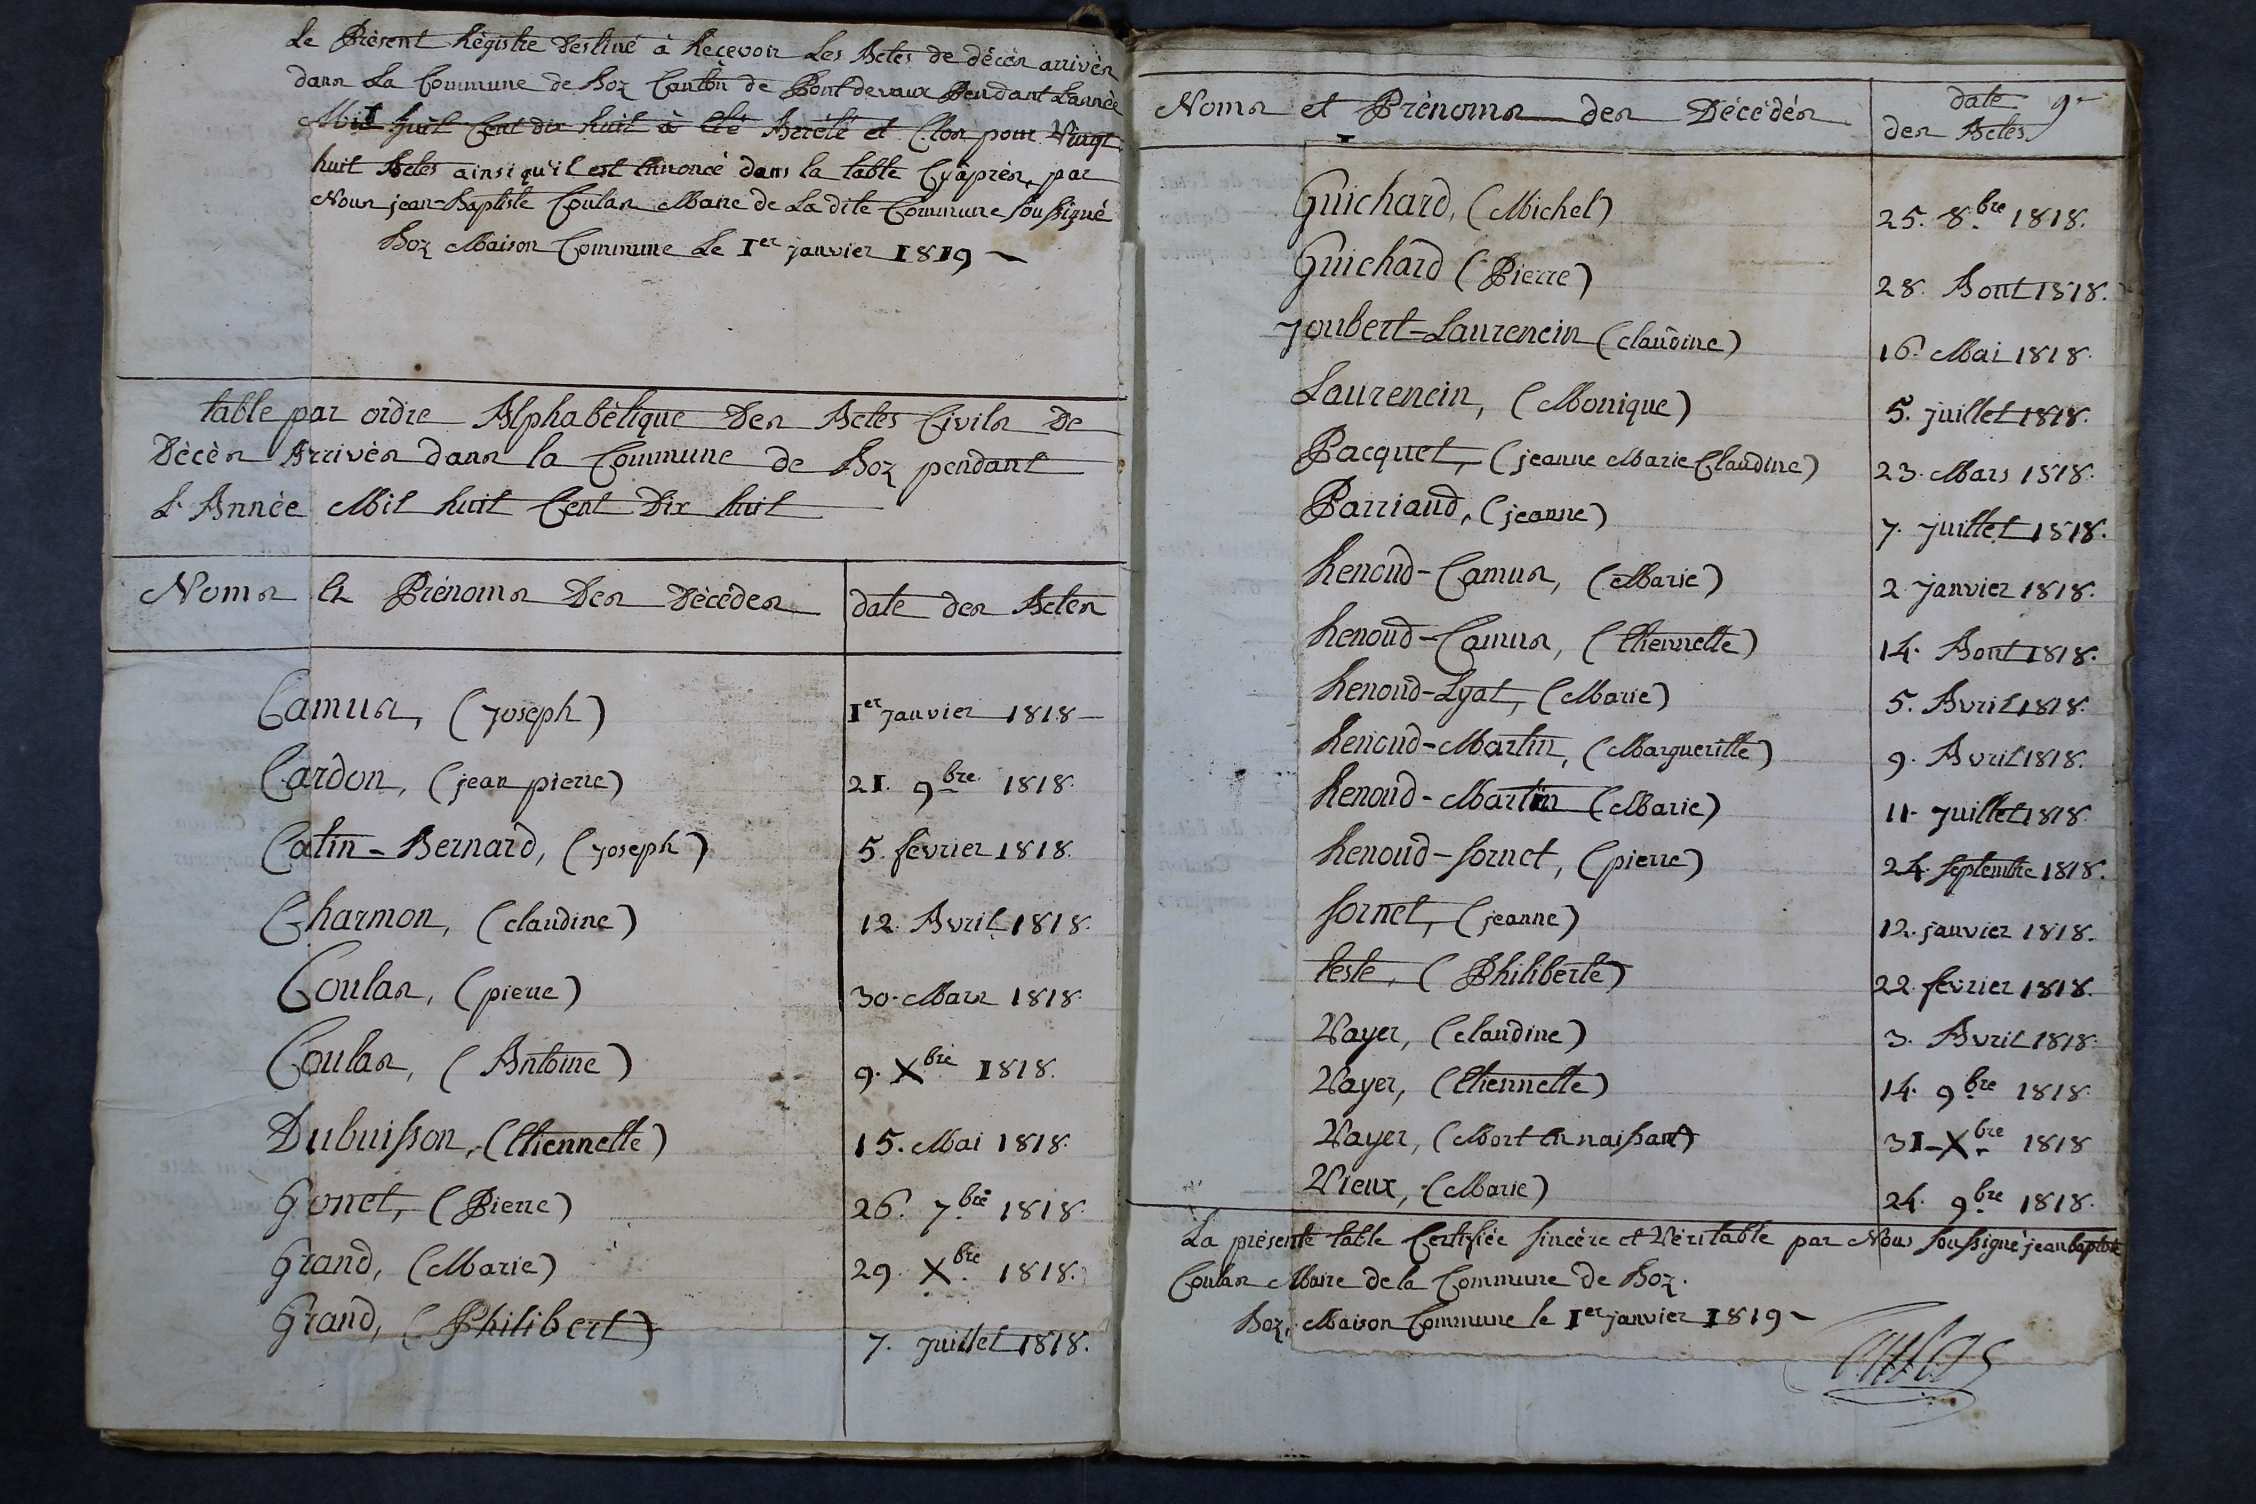 Le Présent Régistre Destiné à Recevoir Les Actes de décès arrivés
dans La Commune de Boz Canton de Pont devaux Pendant L'année
Mil huit Cent dix huit a été Arrêté et Clos pour Vingt
huit Actes ainsi qu'il est Enoncé dans la table Cy après, par
Nous jean-Baptiste Coulas Maire de La dite Commune Soussigné
Boz Maison Commune Le 1er janvier 1819
table par ordre Alphabétique Des Actes Civils De
Décès Arrivés dans la Commune de Boz pendant
L'Année Mil huit Cent Dix huit
Noms Et Prénoms Des Décédés date des Actes
Camus, (Joseph) 1er Janvier 1818
Cardon, (jean pierre) 21. 9bre 1818.
Catin-Bernard, (Joseph) 5. février 1818.
Charmon, (claudine) 12. Avril 1818.
Coulas, (pierre) 30. Mars 1818.
Coulas, (Antoine) 9. Xbre 1818.
Dubuisson, (Etiennette) 15. Mai 1818.
Gonet, (Pierre) 26. 7bre 1818.
Grand, (Marie) 29. Xbre 1818.
Grand, (Philibert) 7. Juillet 1818.
Noms et Prénoms des Décédés date des Actes 9.
Guichard, (Michel) 25. 8bre 1818.
Guichard (Pierre) 28. Aout 1818.
Joubert-Laurencin (claudine) 16. Mai 1818.
Laurencin, (Monique) 5. juillet 1818.
Pacquet, (jeanne Marie Claudine) 23. Mars 1818.
Parriaud, (jeanne) 7. Juillet 1818.
Renoud-Camus, (Marie) 2. Janvier 1818.
Renoud-Camus, (Etiennette) 14. Aout 1818.
Renoud-Lyat, (Marie) 5. Avril 1818.
Renoud-Martin, (Margueritte) 9. Avril 1818.
Renoud-Martin (Marie) 11. Juillet 1818.
Renoud-Sornet, (pierre) 24. Septembre 1818.
Sornet, (jeanne) 12. janvier 1818.
teste, (Philiberte) 22. février 1818.
Vayer, (claudine) 3. Avril 1818.
Vayer, (Etiennette) 14. 9bre 1818.
Vayer, (Mort En naissant) 31-Xbre 1818
Vieux, (Marie) 24. 9bre 1818.
La présente table Certifiée Sincère et Véritable par Nous Soussigné jean baptiste
Coulas Maire de la Commune de Boz.
Boz, Maison Commune le 1er janvier 1819
Coulas